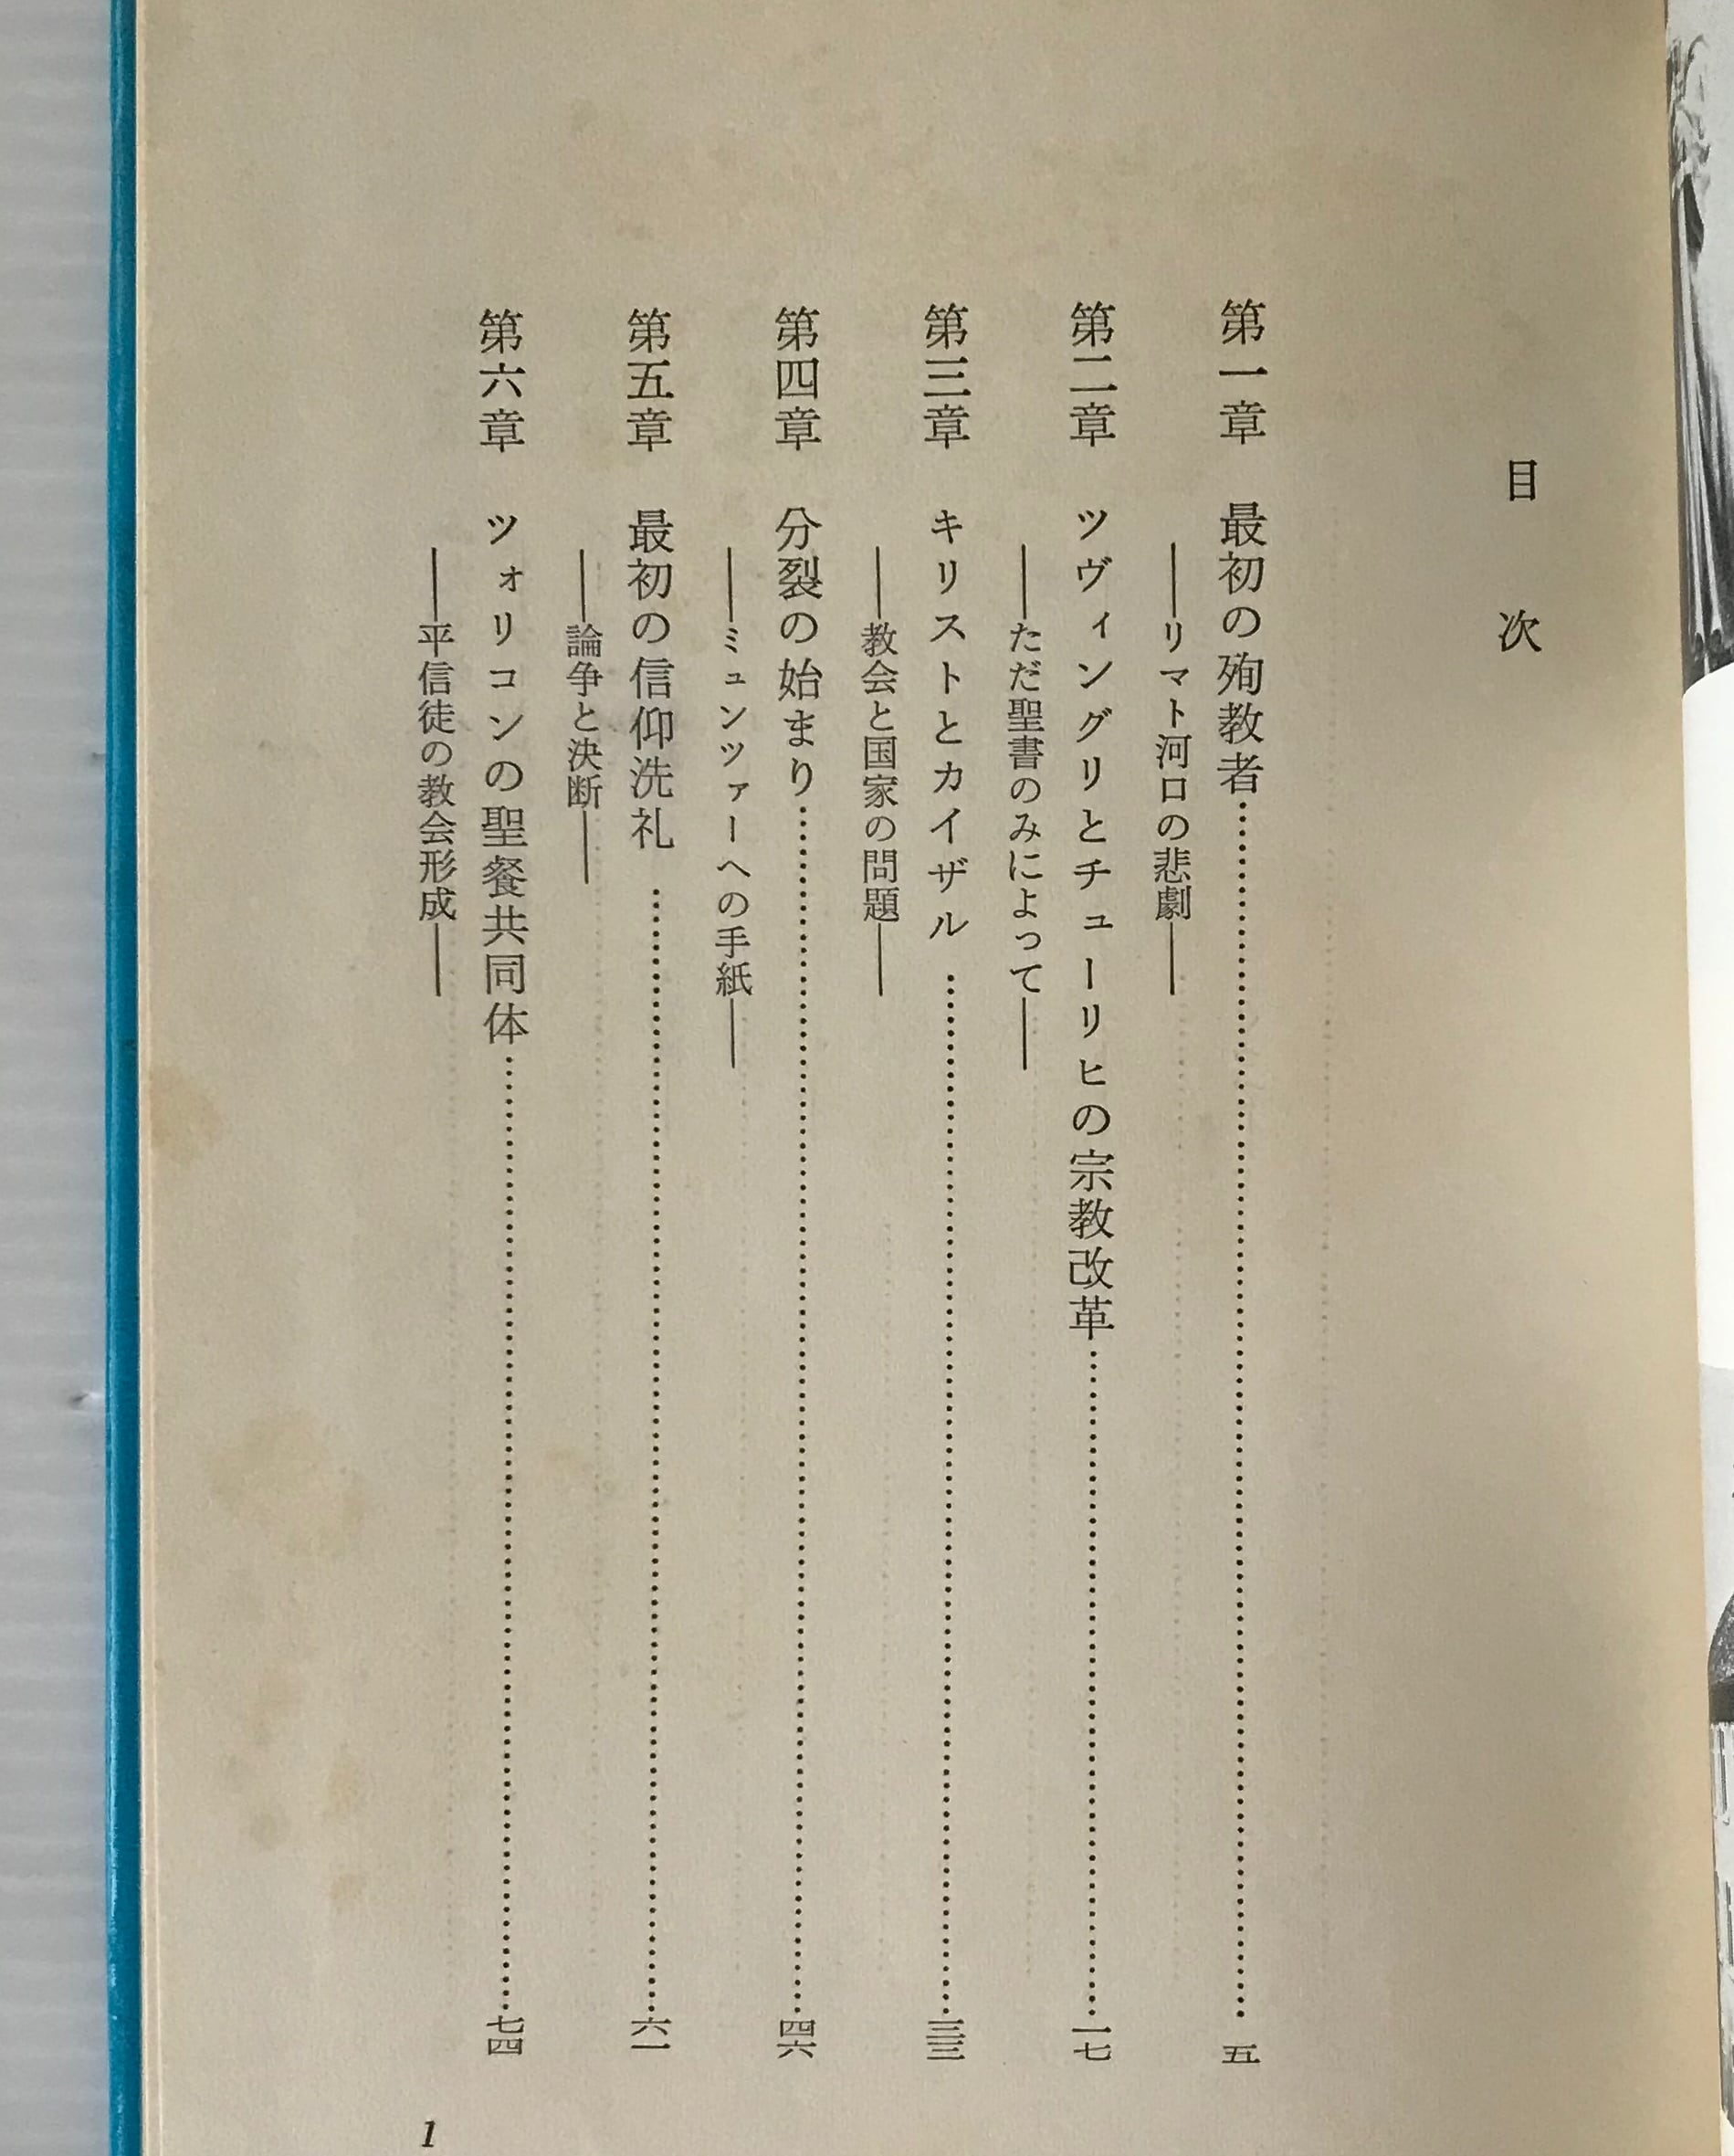 目次
第一章 最初の殉教者……五
――リマト河口の悲劇――
第二章 ツヴィングリとチューリヒの宗教改革……一七
――ただ聖書のみによって――
第三章 キリストとカイザル……三三
――教会と国家の問題――
第四章 分裂の始まり……四六
――ミュンツァーへの手紙――
第五章 最初の信仰洗礼……六一
――論争と決断――
第六章 ツォリコンの聖餐共同体……七四
――平信徒の教会形成――
1